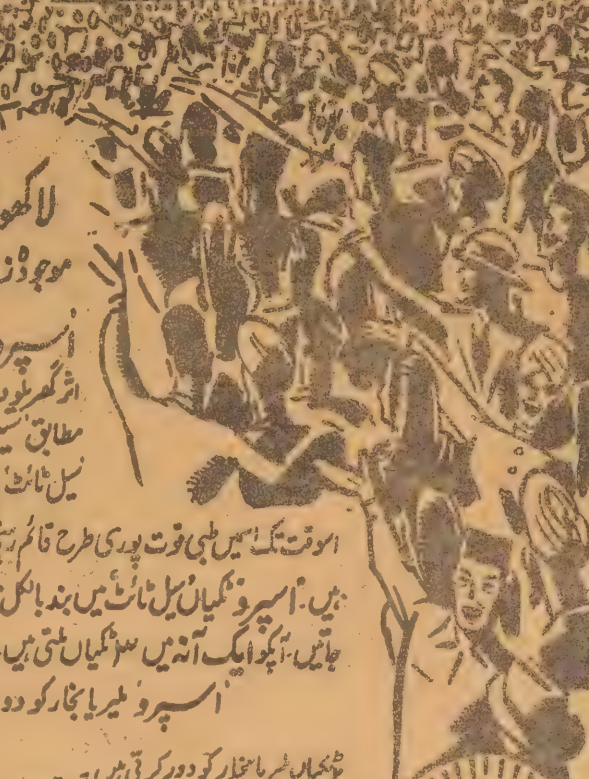 لاکھو
موجودہ ز
'اسپرو
اثر گھریلو د
مطابق 'سیل
'سیل ٹائٹ'
اسوقت تک اسمیں طبی قوت پوری طرح قائم رہت
ہیں۔ 'اسپرو' ٹکیاں 'سیل ٹائٹ' میں بند بالکل
جاتیں۔ آپکو ایک آنہ میں ۳ ٹکیاں ملتی ہیں۔
'اسپرو' ملیریا بخار کو دور
ٹکیاں ملیریا بخار کو دور کرتی ہیں